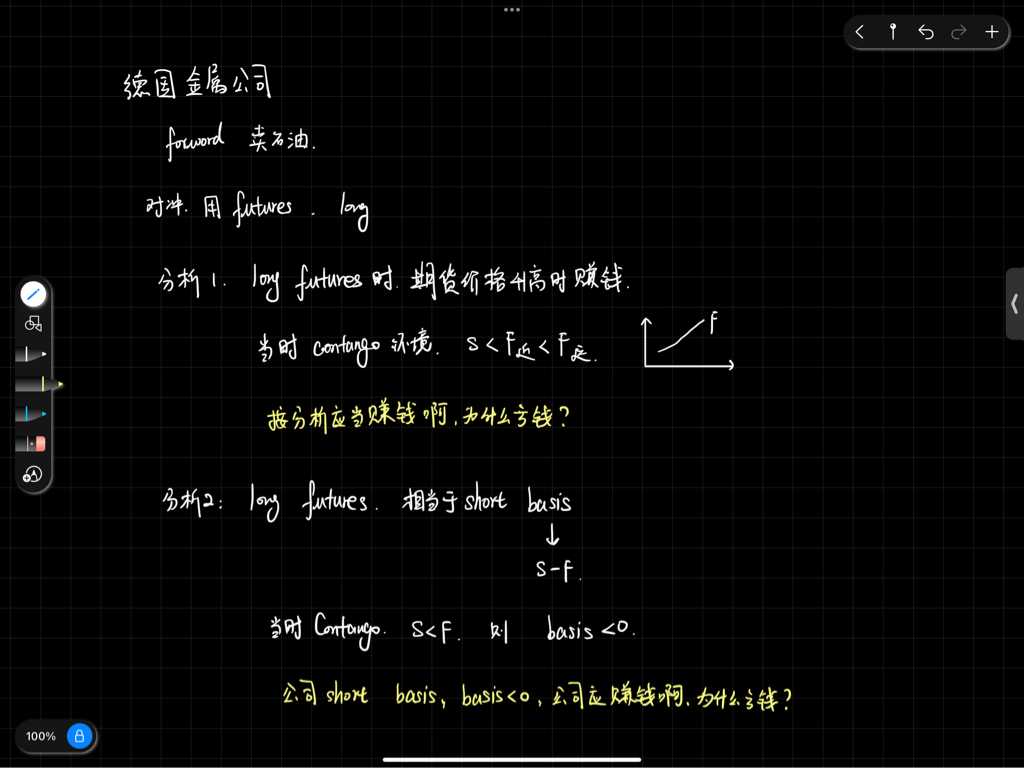 德国金属公司
forword 卖石油.
对冲. 用 futures . long
分析1. long futures 时. 期货价格升高时赚钱.
当时 contango 环境. S < F近 < F远.
F
按分析应当赚钱啊,为什么亏钱?
分析2: long futures. 相当于 short basis
↓
S-F.
当时 Contango. S<F. 则 basis <0.
公司 short basis, basis<0, 公司应赚钱啊,为什么亏钱?
100%